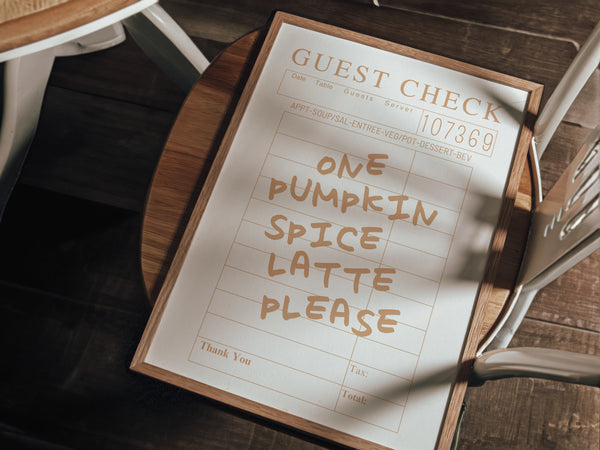 GUEST CHECK
Date Table Guests Server
107369
APPT-SOUP/SAL-ENTREE-VEG/POT-DESSERT-BEV
ONE
PUMPKIN
SPICE
LATTE
PLEASE
Thank You
Tax:
Total: